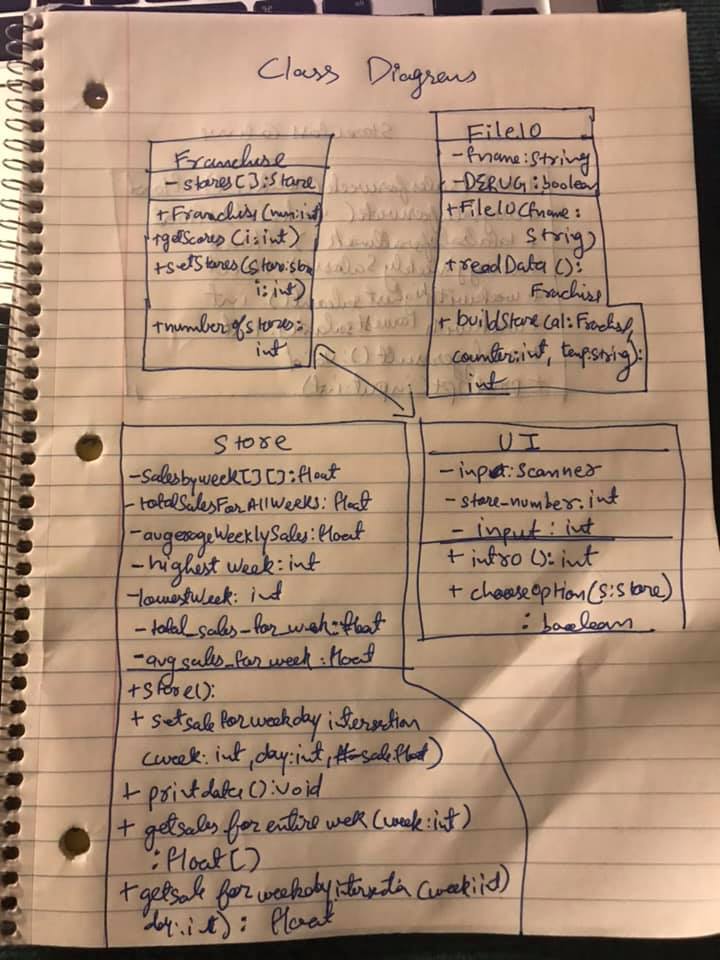 Class Diagrems
Franchise
- stores[]: Store
+ Franchise (num:int)
+getScores (i:int)
+setStores (Store:sto
i:int)
+number of stores:
int
FileIO
-fname:String
-DEBUG:boolean
+FileIO(fname:
Strig)
+readData():
Frachise
+ buildStore (al:Frachis,
counter:int, temp:string):
int
Store
-Salesbyweek[][]:float
-totalSalesForAllWeeks: float
-avgerageWeeklySales:float
-highest week:int
-lowestWeek: int
-total_sales_for_week:float
-avg sales_for week:float
+Store():
+ setsale for weekday itersection
(week: int, day:int, sale:float)
+ printdata():void
+ getsales for entire week (week:int)
:float[]
+ getsale for weekday intersectin (week:it)
day:it): float
UI
-input:Scanner
-store-number:int
- input: int
+ intro(): int
+ chooseOption(s:Store)
: boolean